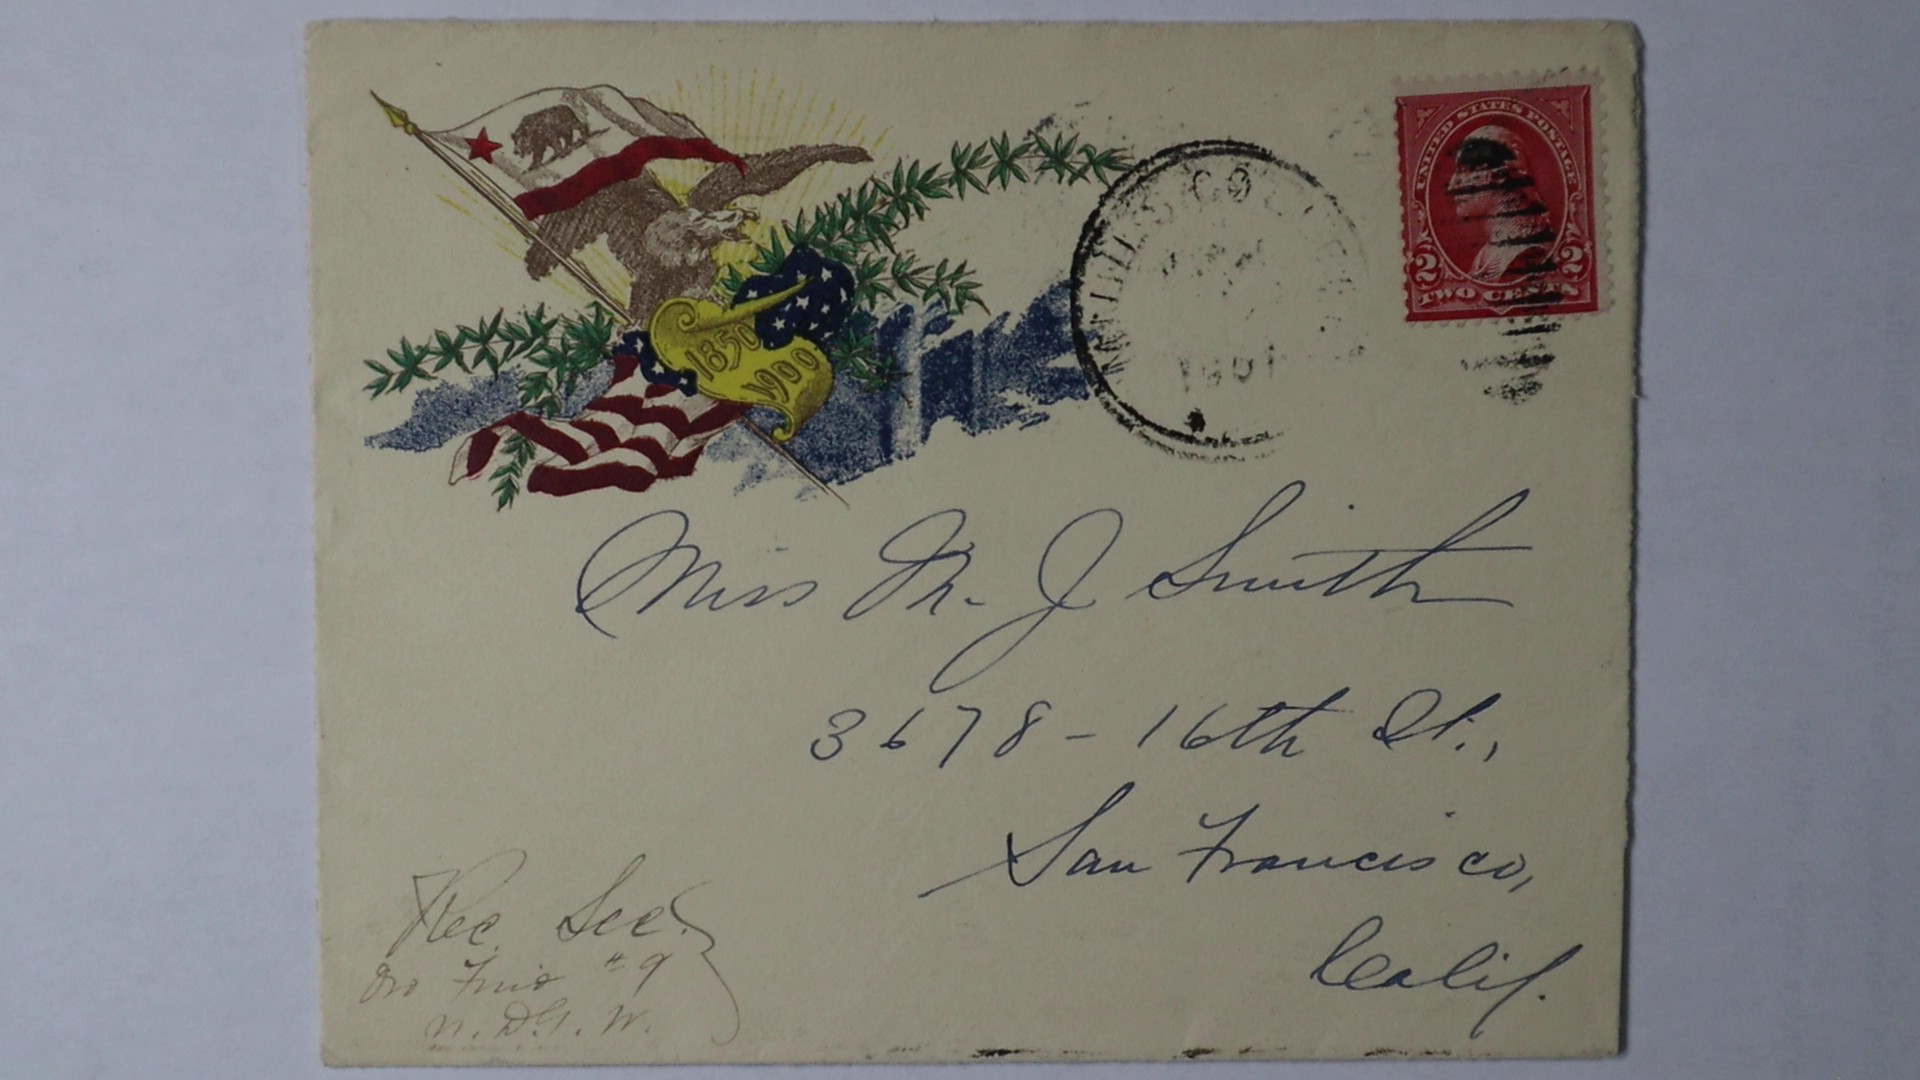 UNITED STATES POSTAGE
2 2
TWO CENTS
1850
1900
Miss M. J. Smith
3678 - 16th St.,
San Francisco,
Calif.
Rec. Sec.
Oro Fino #9
N. D. G. W.